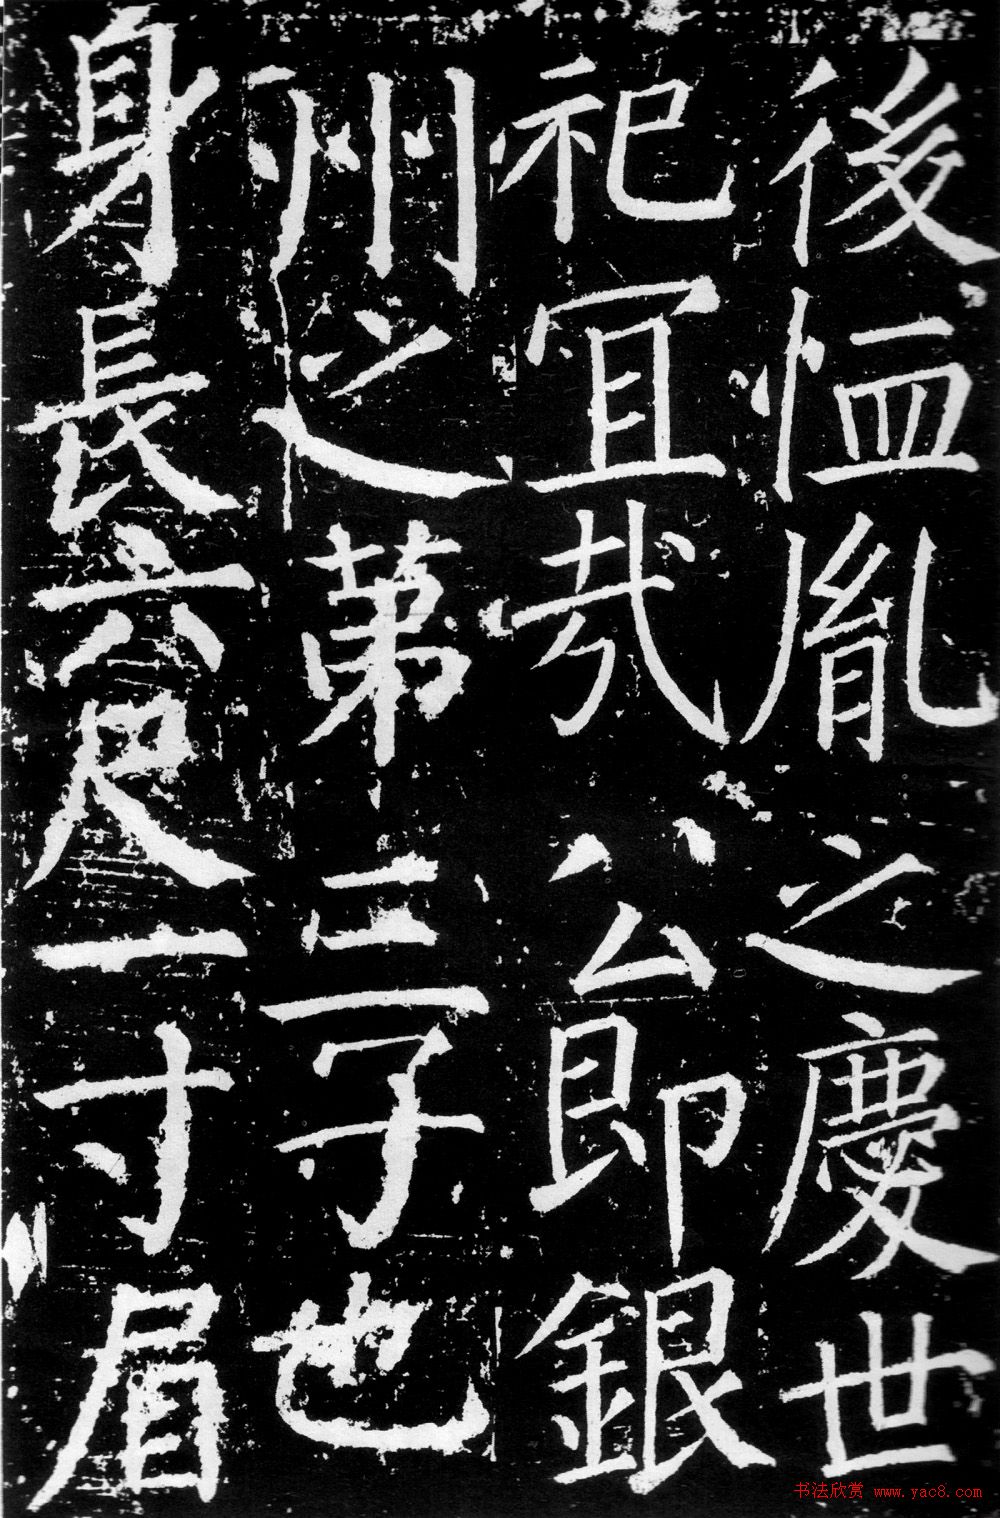 後恤胤之慶世
祀宜哉公即銀
州之第三子也
身長六尺一寸眉
书法欣赏 www.yac8.com